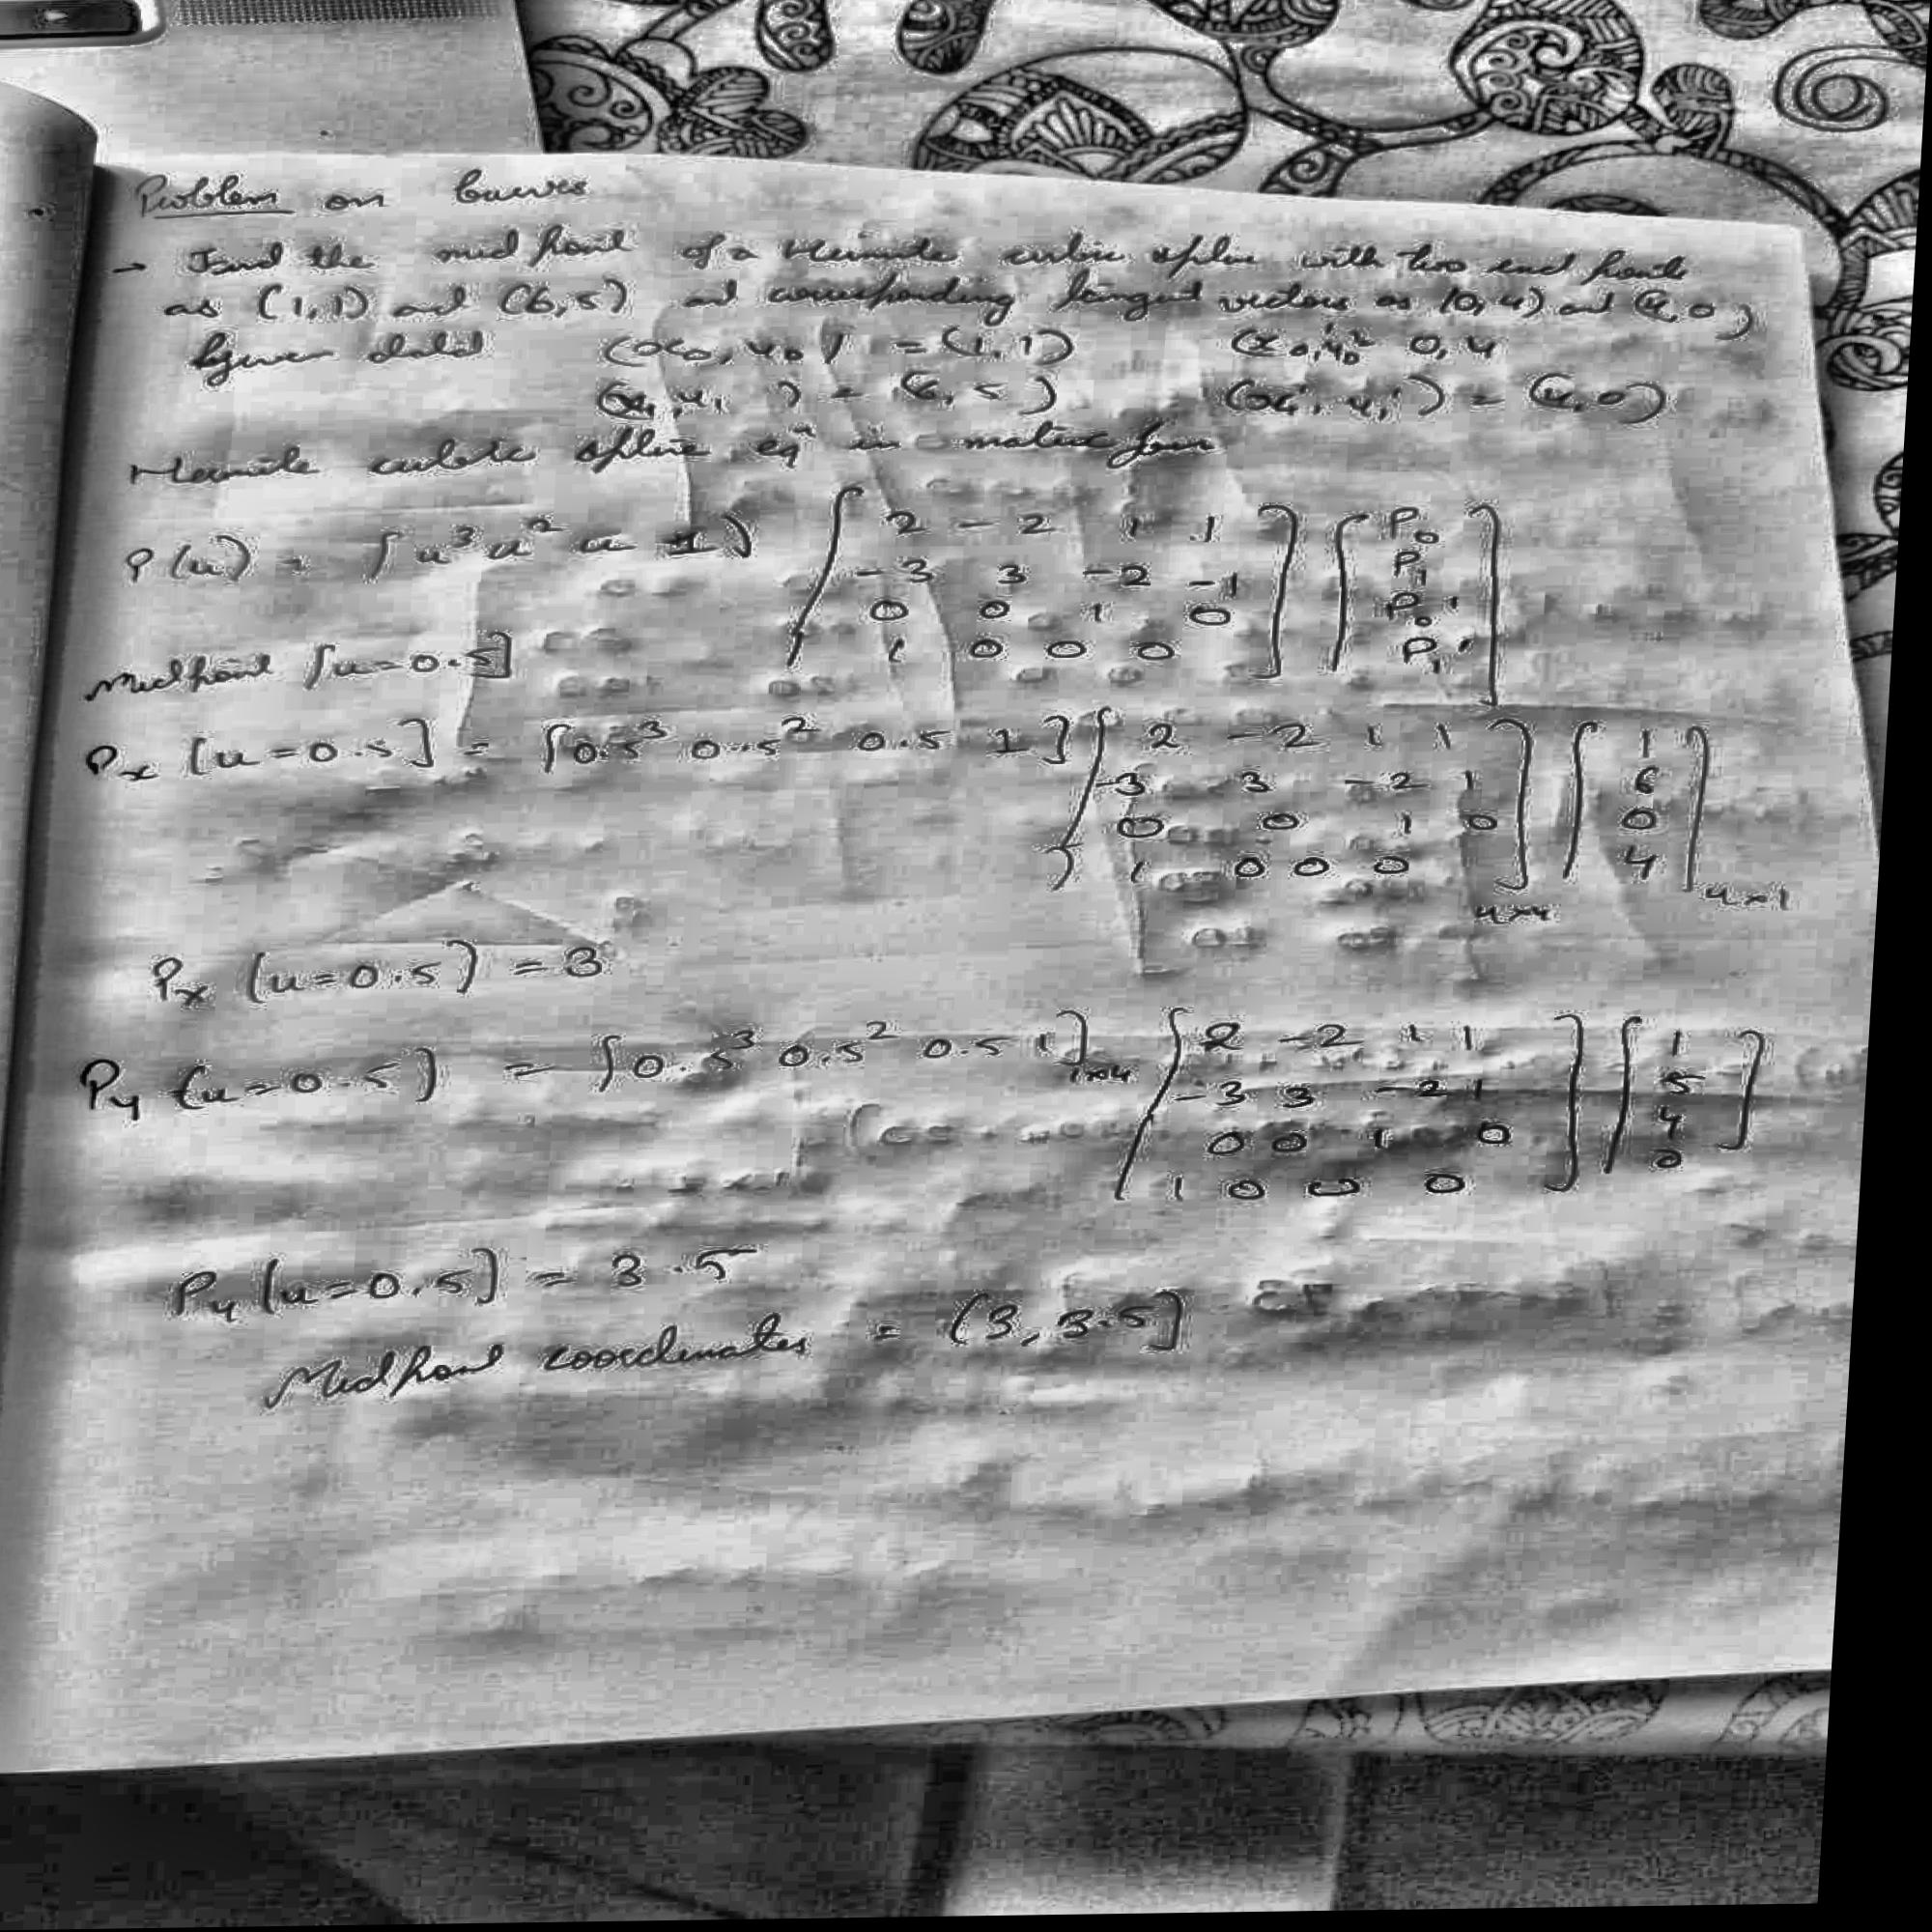 Problem on Curves
→ Find the mid point of a Hermite cubic spline with two end points
as (1,1) and (6,5) and corresponding tangent vectors as (0,4) and (4,0)
Given data (x0, y0) = (1,1) (x0', y0' = 0,4
(x1, y1) = (6,5) (x1', y1') = (4,0)
Hermite cubic spline eqn in matrix form
P(u) = [u³ u² u 1) [ 2 -2 1 1 ] [ P0 ]
-3 3 -2 -1 P1
0 0 1 0 P0'
1 0 0 0 P1'
Midpoint [u=0.5]
Px [u=0.5] = [0.5³ 0.5² 0.5 1] [ 2 -2 1 1 ] [ 1 ]
-3 3 -2 1 6
0 0 1 0 0
1 0 0 0 4
4×4 4×1
Px (u=0.5) = 3
Py (u=0.5) = [0.5³ 0.5² 0.5 1]1×4 [ 2 -2 1 1 ] [ 1 ]
-3 3 -2 1 5
0 0 1 0 4
1 0 0 0 0
Py (u=0.5] = 3.5
Midpoint coordinates = (3, 3.5]